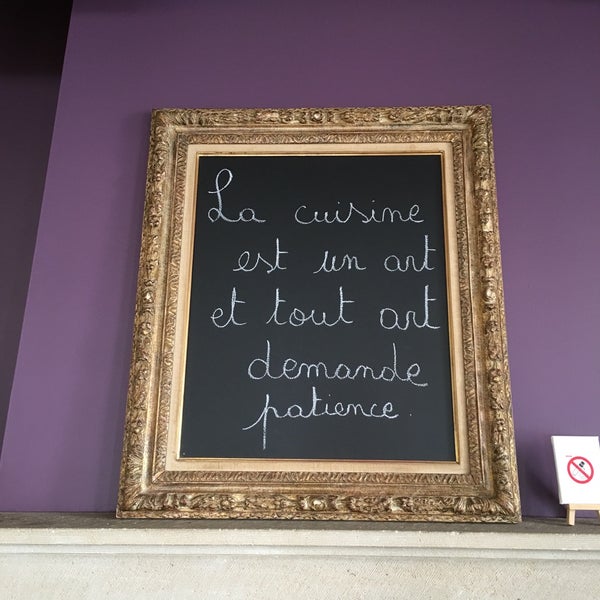 La cuisine
est un art
et tout art
demande
patience.